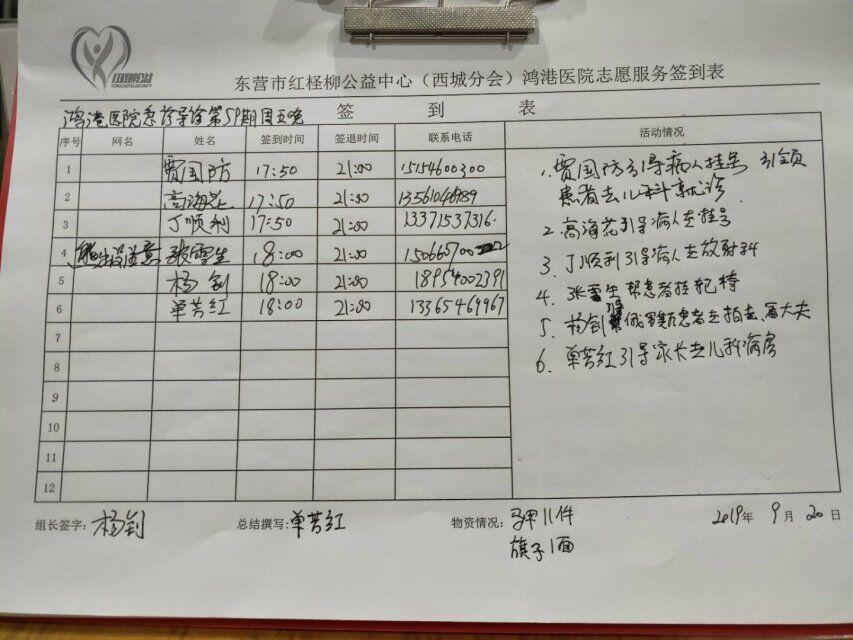 红柽柳公益
东营市红柽柳公益中心（西城分会）鸿港医院志愿服务签到表
签 到 表
鸿港医院急诊导诊第59期周五晚
序号 网名 姓名 签到时间 签退时间 联系电话 活动情况
1 贾国防 17:50 21:00 15154600300
2 高海花 17:50 21:00
3 丁顺利 17:50 21:00 13371537316
4 张雪生 18:00 21:00
5 杨钊 18:00 21:00 18954002391
6 单芳红 18:00 21:00 13365469967
7
8
9
10
11
12
1. 贾国防引导病人挂号 引领
患者去儿科就诊
2. 高海花引导病人去挂号
3. 丁顺利引导病人去放射科
4. 张雪生帮患者挂轮椅
5. 杨钊 俄罗斯患者去拍去、大夫
6. 单芳红引导家长去儿科病房
组长签字：杨钊 总结撰写：单芳红 物资情况：马甲11件
旗子1面
2019年 9月 20日